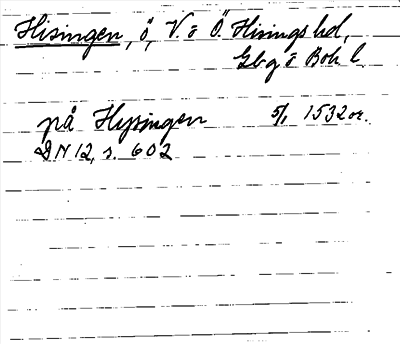 Hisingen, ö, V o Ö Hisings hd,
Gbg o Boh. l.
på Hysingen 5/1 1532 or.
DN 12, s. 602